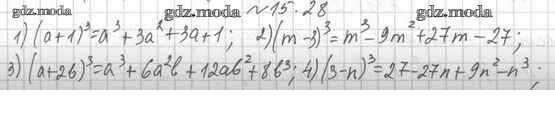 gdz.moda gdz.moda №15.28 gdz.moda
1) (a+1)³=a³+3a²+3a+1; 2) (m-3)³=m³-9m²+27m-27;
3) (a+2b)³=a³+6a²b+12ab²+8b³; 4) (3-n)³=27-27n+9n²-n³;